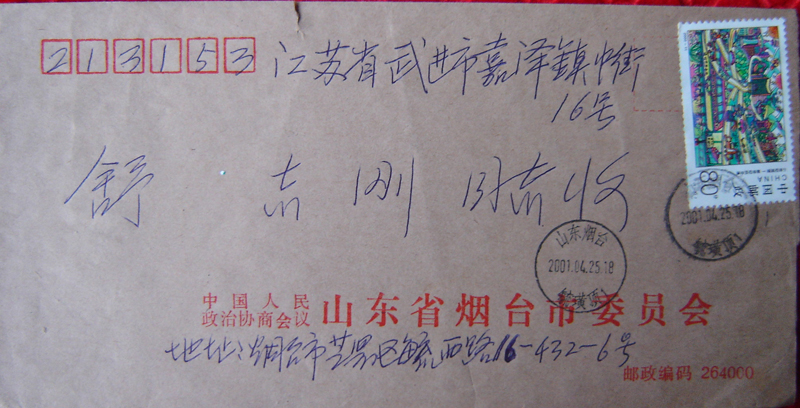 213153 江苏省武进市嘉泽鎮中街
16号
舒志刚 同志 收
中国邮政
CHINA
80分
山东烟台
2001.04.25.18
2001.04.25.18
中国人民
政治协商会议 山东省烟台市委员会
地址:烟台市芝罘区毓西路16-432-6号
邮政编码 264000